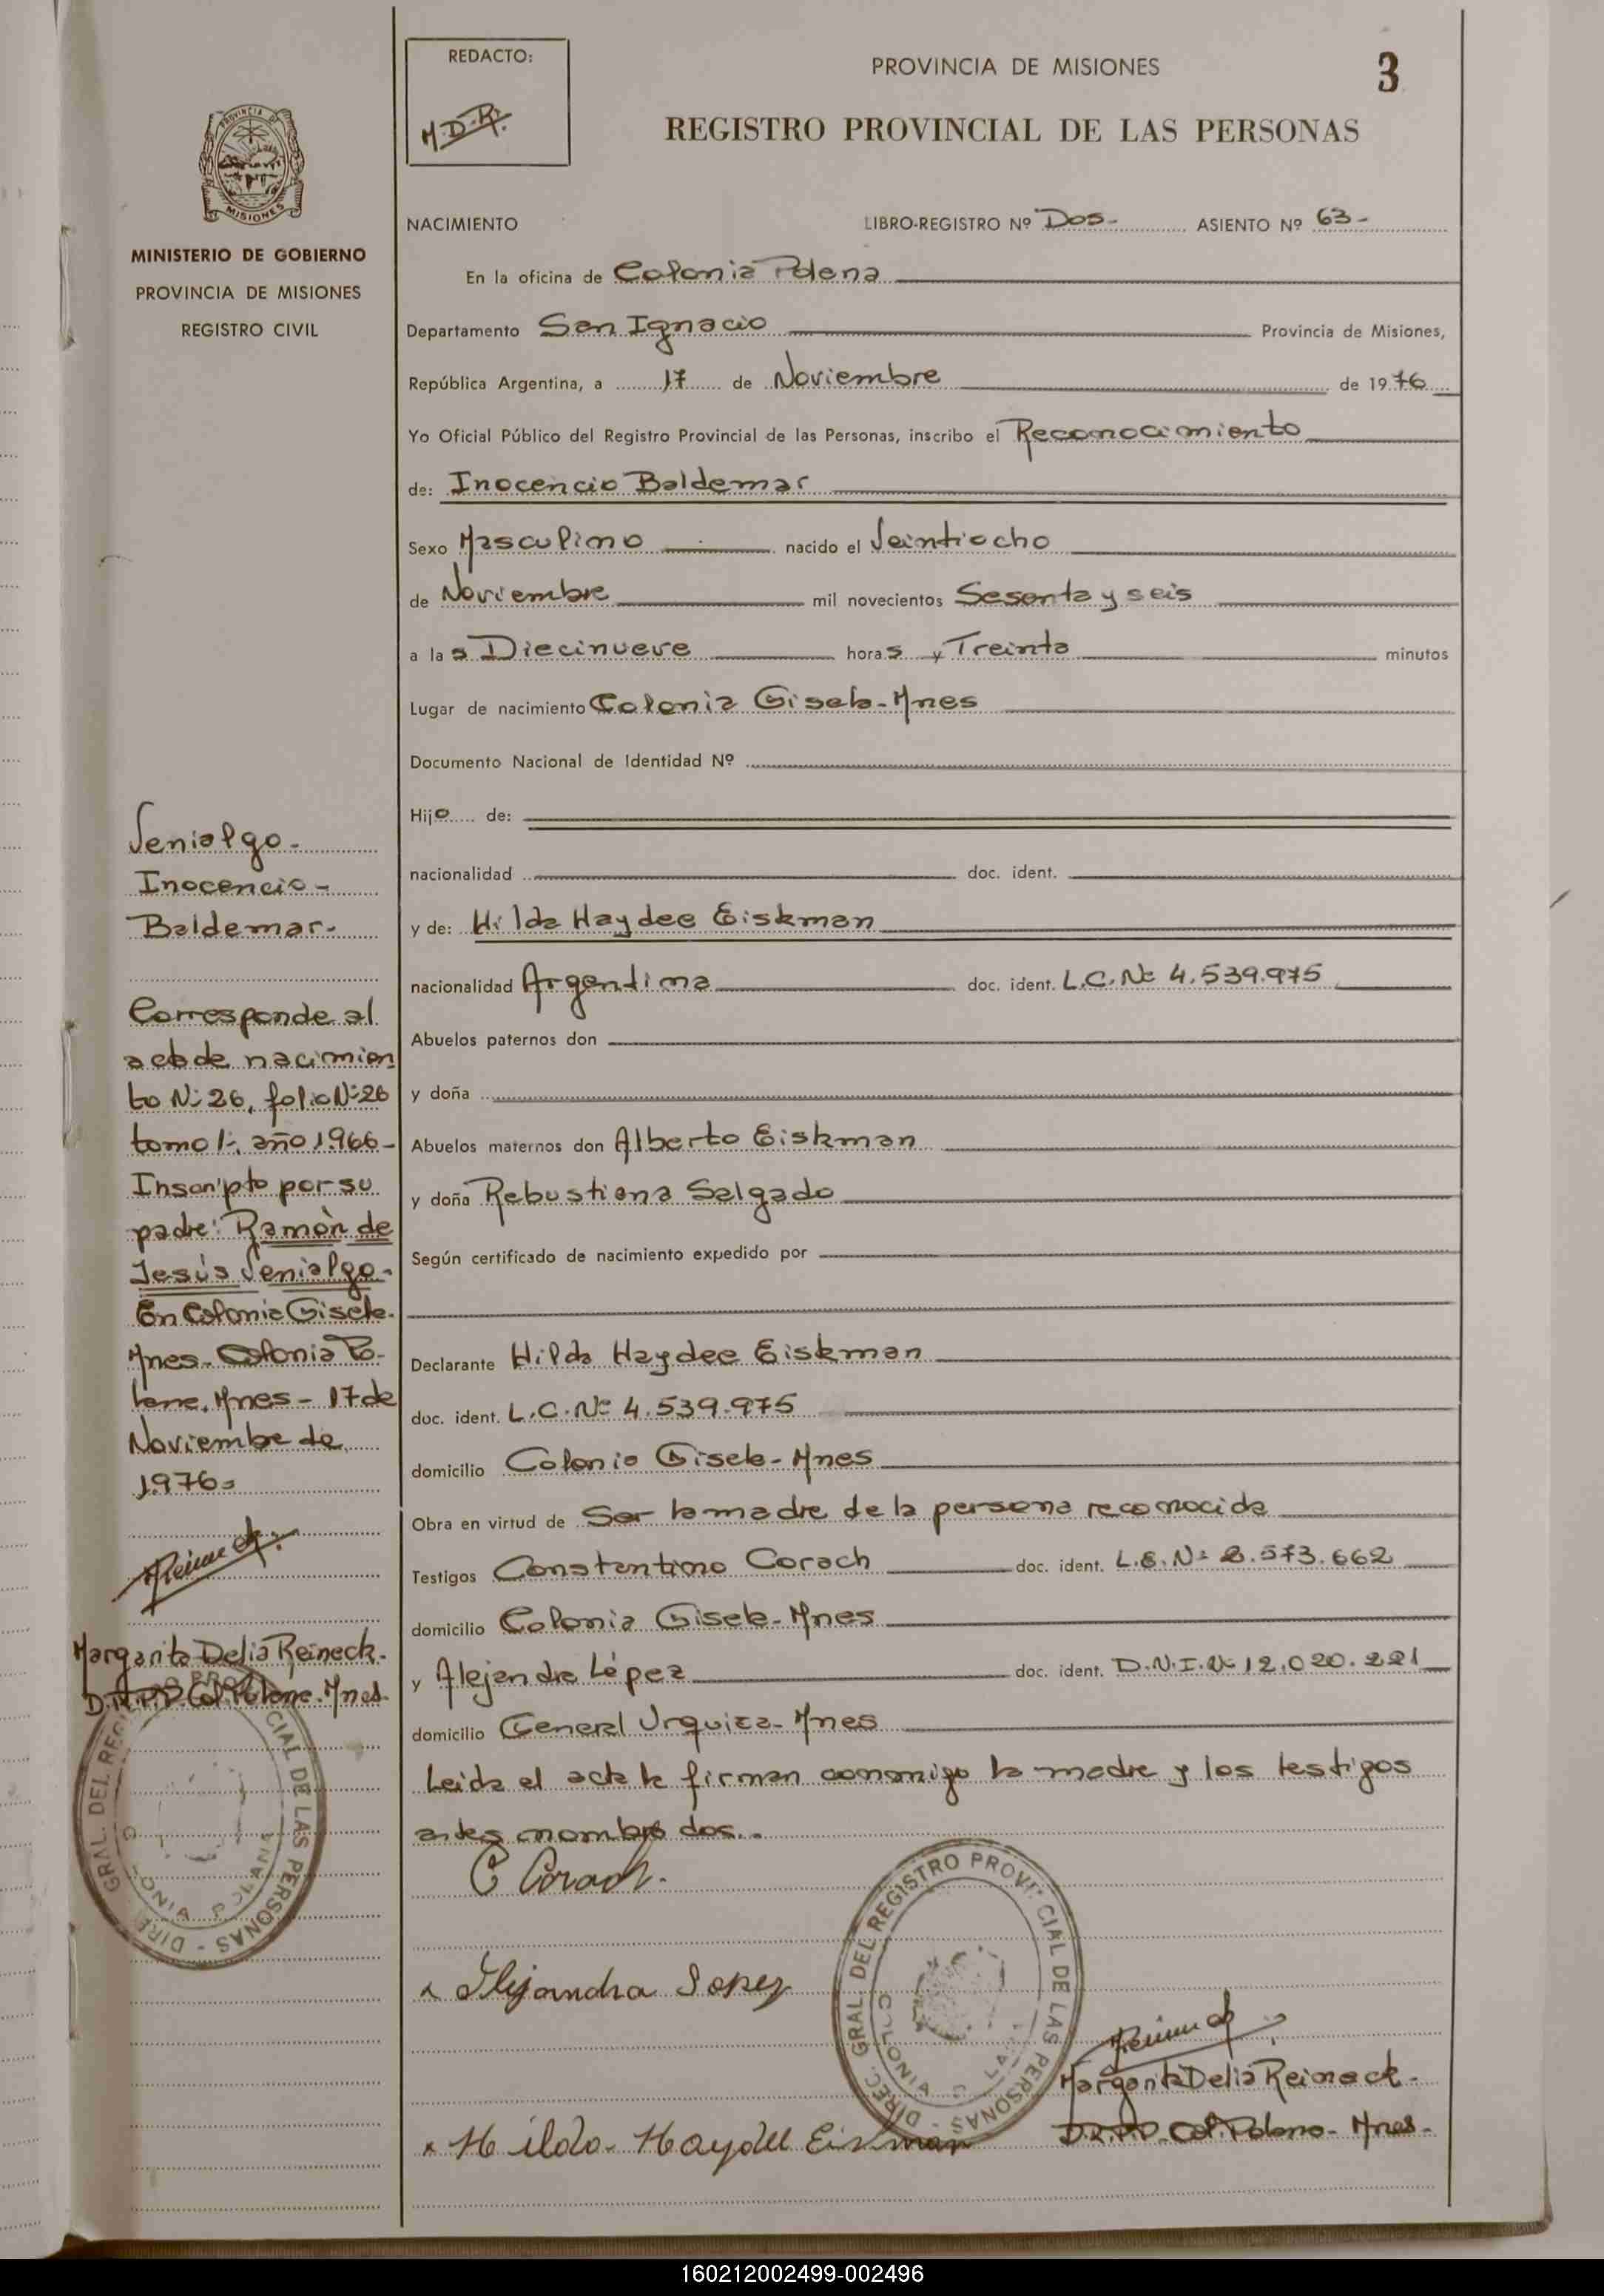 REDACTO:
M.D.R.
PROVINCIA DE MISIONES
3
REGISTRO PROVINCIAL DE LAS PERSONAS
MISIONES
MINISTERIO DE GOBIERNO
PROVINCIA DE MISIONES
REGISTRO CIVIL
NACIMIENTO LIBRO-REGISTRO Nº Dos- ASIENTO Nº 63-
En la oficina de Colonia Polana
Departamento San Ignacio Provincia de Misiones,
República Argentina, a 17 de Noviembre de 1976
Yo Oficial Público del Registro Provincial de las Personas, inscribo el Reconocimiento
de: Inocencio Baldemar
Sexo Masculino nacido el Veintiocho
de Noviembre mil novecientos Sesenta y seis
a las Diecinueve horas y Treinta minutos
Lugar de nacimiento Colonia Gisela-Mnes
Documento Nacional de Identidad Nº
Hijo de:
nacionalidad doc. ident.
y de: Hilda Haydee Eiskman
nacionalidad Argentina doc. ident. L.C.Nº 4.539.975
Abuelos paternos don
y doña
Abuelos maternos don Alberto Eiskman
y doña Rebustiana Salgado
Según certificado de nacimiento expedido por
Declarante Hilda Haydee Eiskman
doc. ident. L.C.Nº 4.539.975
domicilio Colonia Gisela-Mnes
Obra en virtud de Ser la madre de la persona reconocida
Testigos Constantino Corach doc. ident. L.E.Nº 8.573.662
domicilio Colonia Gisela-Mnes
y Alejandra López doc. ident. D.N.I.Nº 12.020.221
domicilio General Urquiza-Mnes
Leida el acta la firman conmigo la madre y los testigos
antes nombrados..
C Corach.
x Alejandra Lopez
x Hilda Haydee Eiskman
Margarita Delia Reineck-
D.R.P.P. Col. Polana- Mnes-
DIREC. GRAL. DEL REGISTRO PROVINCIAL DE LAS PERSONAS
COLONIA POLANA
Venialgo-
Inocencio-
Baldemar-
Corresponde al
acta de nacimien
to Nº 26, folio Nº 26
tomo 1º, año 1966-
Inscripto por su
padre: Ramón de
Jesús Venialgo-
En Colonia Gisela-
Mnes- Colonia Po-
lana. Mnes- 17 de
Noviembre de
1976=
Margarita Delia Reineck-
D.R.P.P. Col. Polana- Mnes-
DIREC. GRAL. DEL REGISTRO PROVINCIAL DE LAS PERSONAS
COLONIA POLANA
160212002499-002496